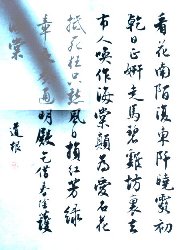 看花南陌復東阡曉露初
乾日正妍走馬碧雞坊裏去
市人喚作海棠顛為愛名花
抵死狂只愁風日損紅芳綠
章夜奏通明殿乞借春陰護
海棠
道根